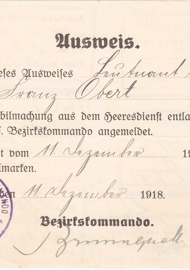 Ausweis.
eses Ausweises Leutnant
Franz Obert
bilmachung aus dem Heeresdienst entla
Bezirkskommando angemeldet.
t vom 11 Dezember 19
lmarken.
ben 11 Dezember 1918.
Bezirkskommando.